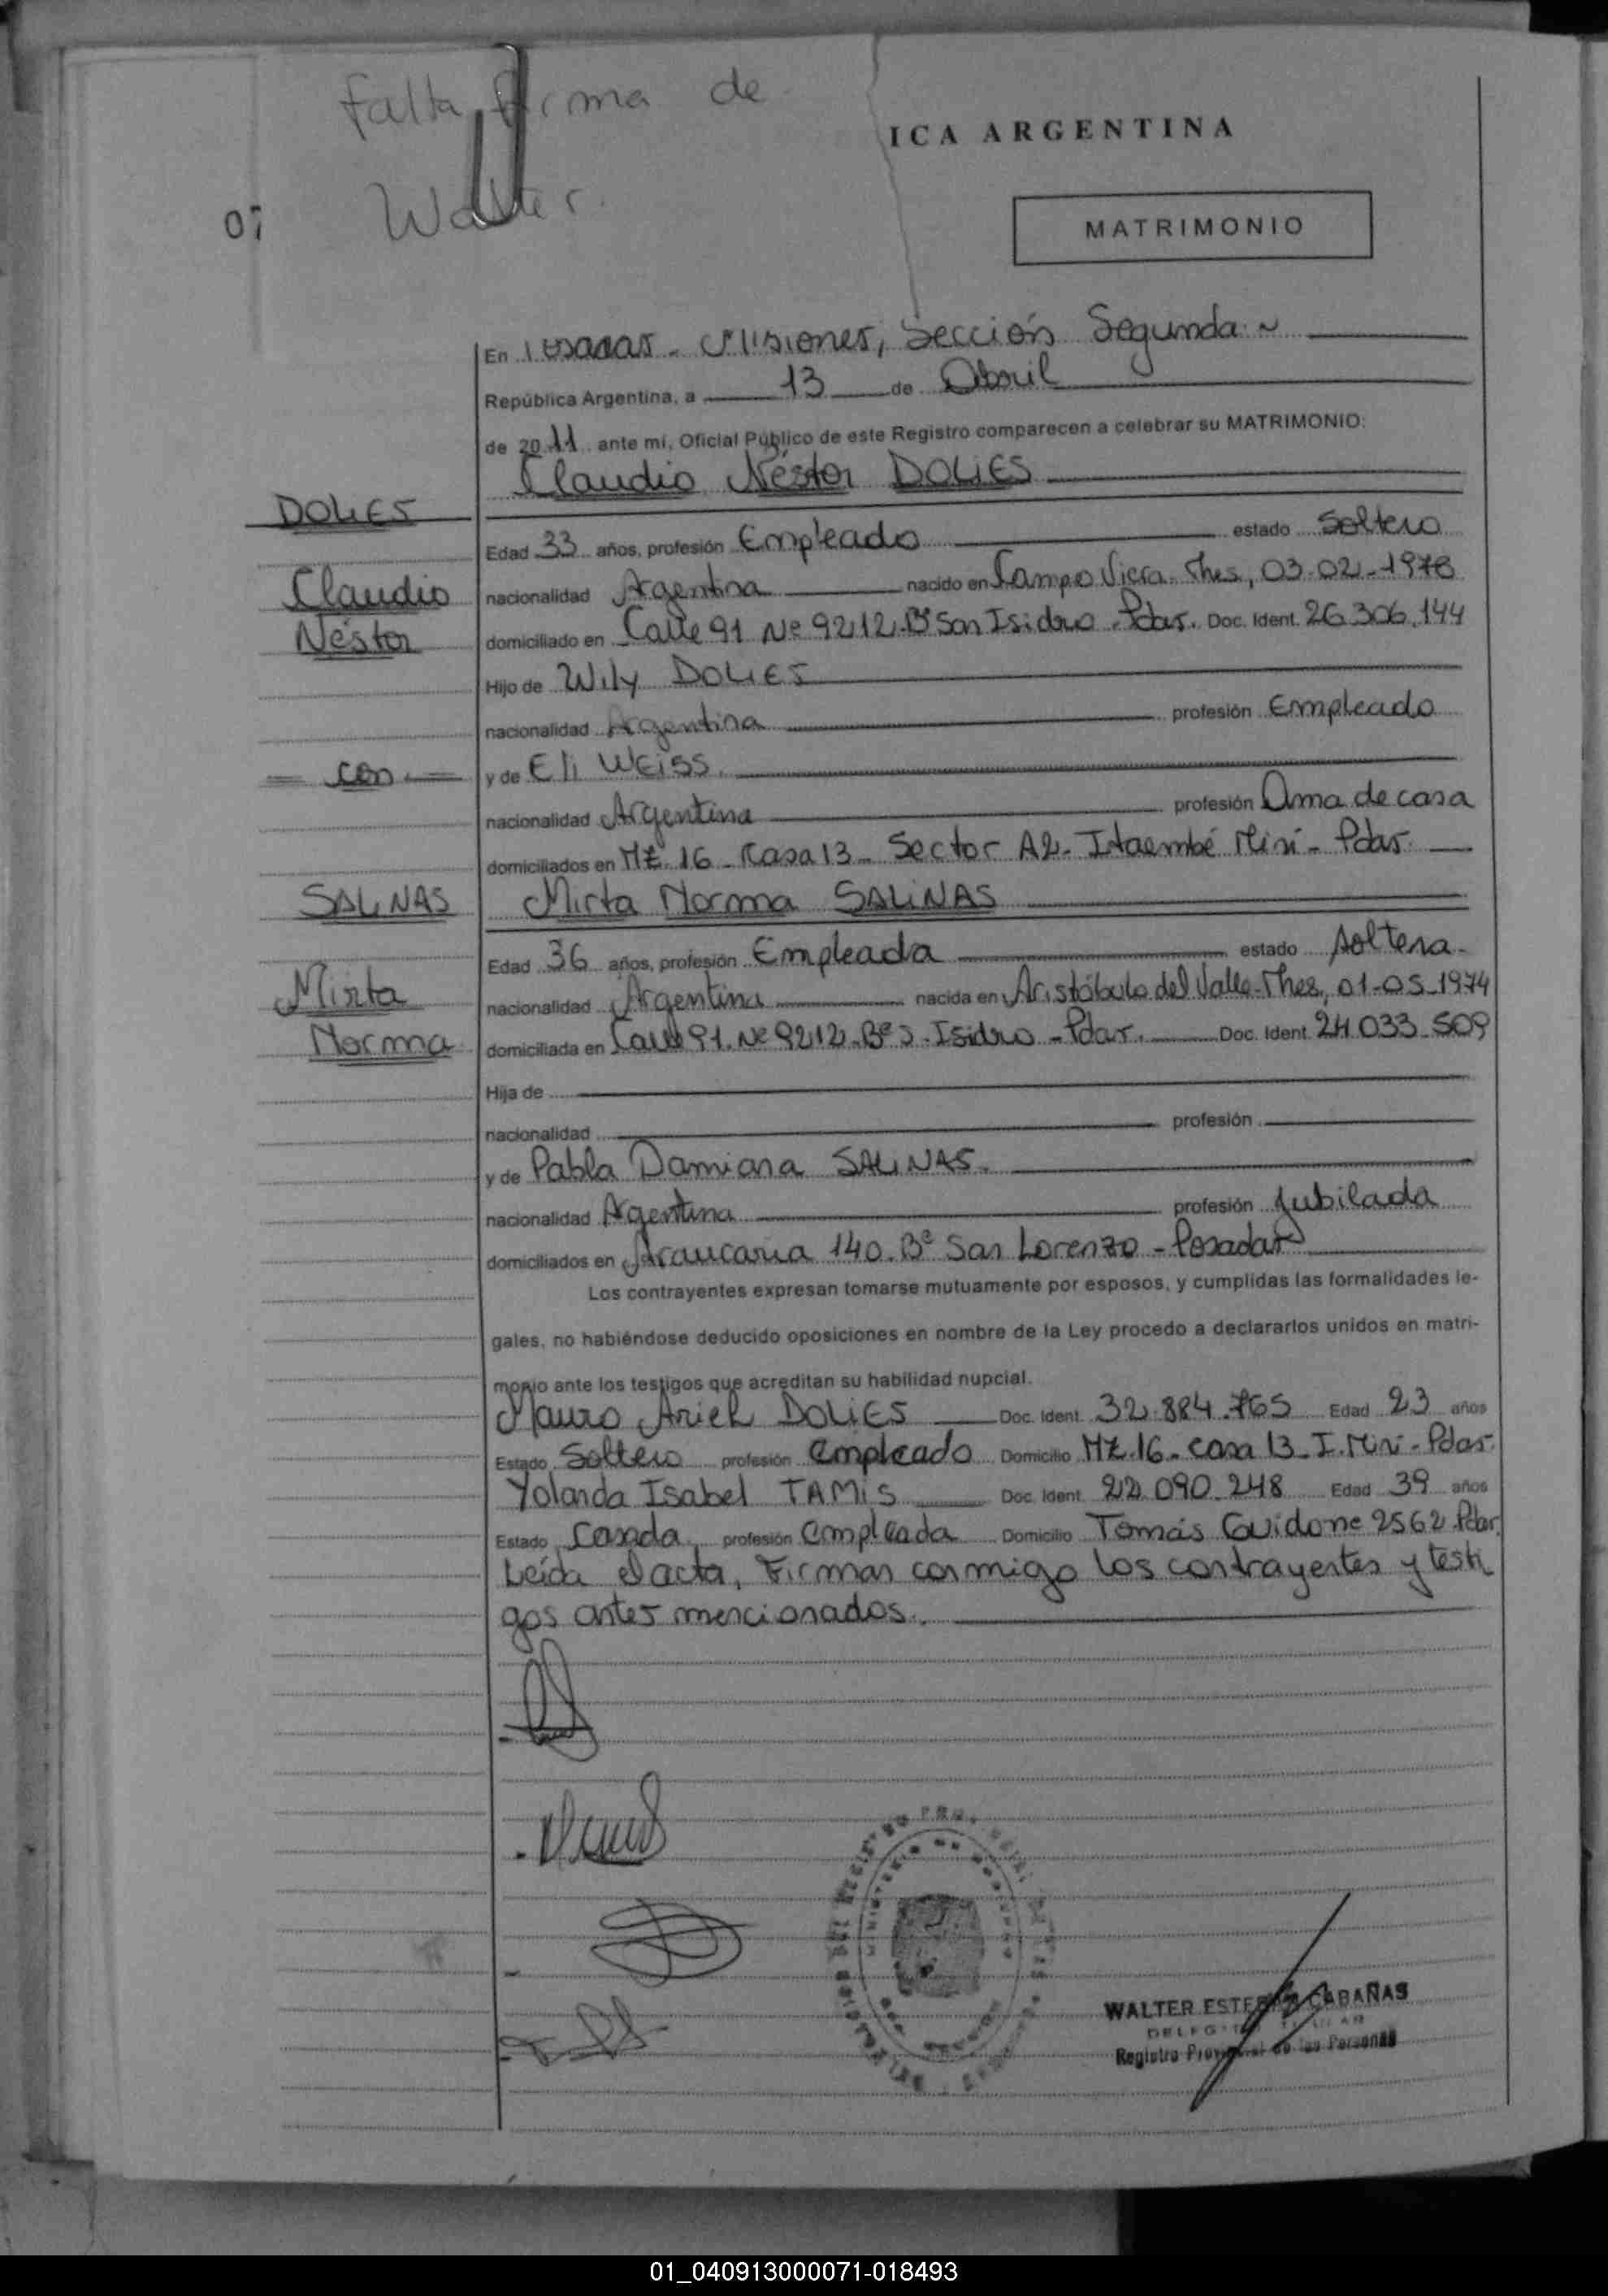 falta firma de
Walter.
ICA ARGENTINA
07
MATRIMONIO
En Posadas - Misiones, Sección Segunda
República Argentina, a 13 de Abril
de 2011 ante mí, Oficial Público de este Registro comparecen a celebrar su MATRIMONIO:
Claudio Néstor DOLIES
DOLIES
Edad 33 años, profesión Empleado estado Soltero
Claudio nacionalidad Argentina nacido en Campo Viera - Mnes, 03-02-1978
Néstor domiciliado en Calle 91 Nº 9212 Bº San Isidro - Pdas. Doc. Ident. 26.306.144
Hijo de Wily DOLIES
nacionalidad Argentina profesión Empleado
con y de Eli WEISS.
nacionalidad Argentina profesión Ama de casa
domiciliados en MZ. 16 - Casa 13 - Sector A2 - Itaembé Miní - Pdas.
SALINAS Mirta Norma SALINAS
Edad 36 años, profesión Empleada estado Soltera -
Mirta nacionalidad Argentina nacida en Aristóbulo del Valle - Mnes, 01-05-1974
Norma domiciliada en Calle 91 Nº 9212 - Bº S. Isidro - Pdas. Doc. Ident. 24.033.509
Hija de
nacionalidad profesión
y de Pabla Damiana SALINAS.
nacionalidad Argentina profesión Jubilada
domiciliados en Araucaria 140 Bº San Lorenzo - Posadas
Los contrayentes expresan tomarse mutuamente por esposos, y cumplidas las formalidades le-
gales, no habiéndose deducido oposiciones en nombre de la Ley procedo a declararlos unidos en matri-
monio ante los testigos que acreditan su habilidad nupcial.
Mauro Ariel DOLIES Doc. Ident. 32.884.765 Edad 23 años
Estado Soltero profesión Empleado Domicilio MZ. 16 - casa 13 - I. Miní - Pdas.
Yolanda Isabel TAMIS Doc. Ident. 22.090.248 Edad 39 años
Estado Casada, profesión Empleada Domicilio Tomás Guido Nº 2562 Pdas.
Leída el acta, Firman conmigo los contrayentes y testi
gos antes mencionados.
WALTER ESTEBAN CABAÑAS
DELEGADO TITULAR
Registro Provincial de las Personas
01_040913000071-018493